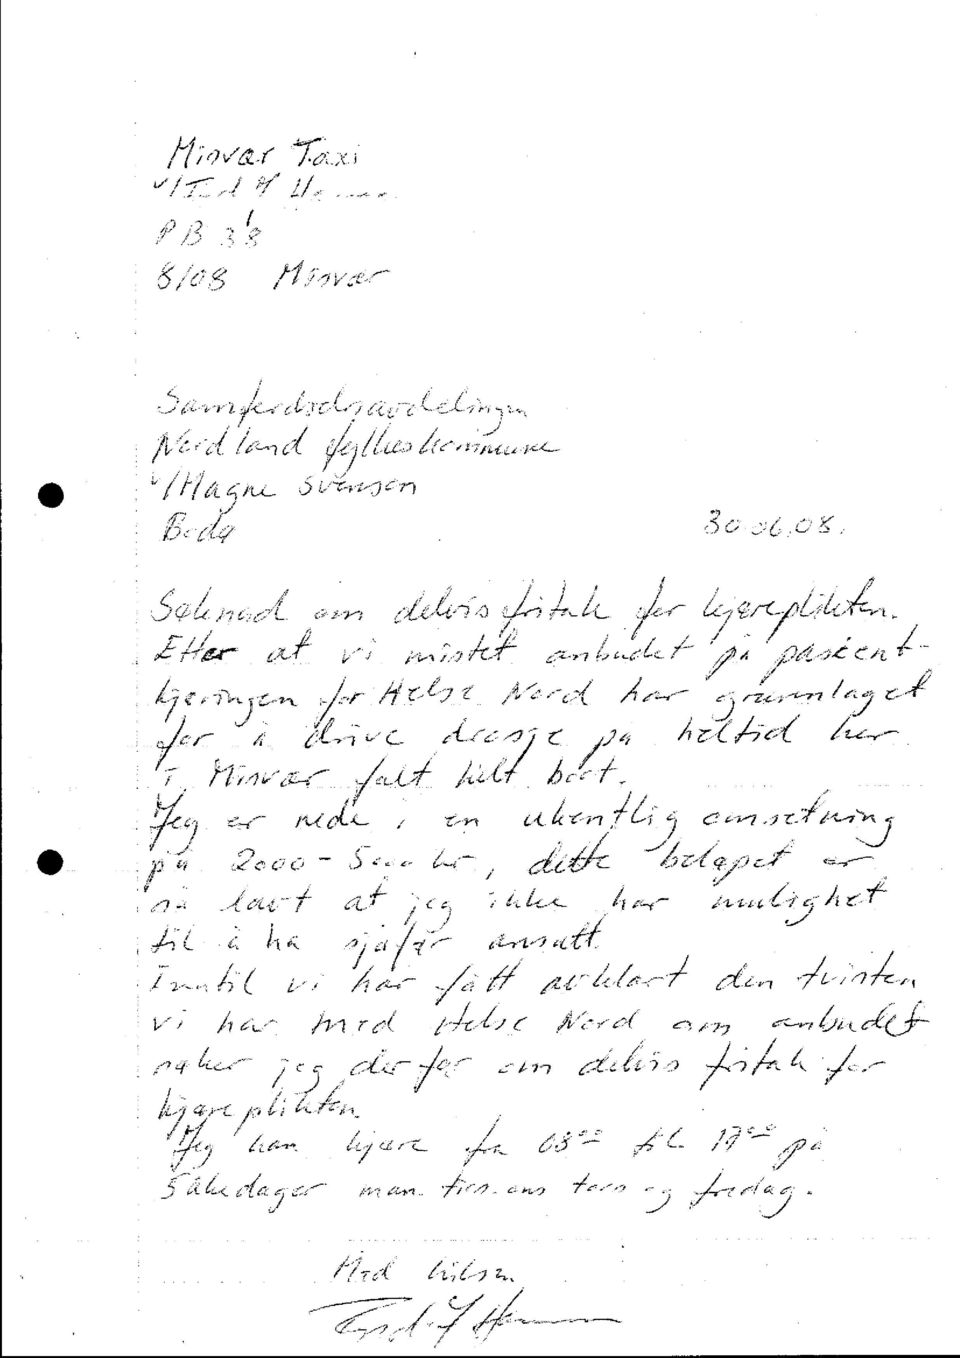 Misvær Taxi
v/
PB 38
8108 Misvær
Samferdselsavdelingen
Nordland fylkeskommune
v/Magne Svensen
Bodø
30.06.08.
Søknad om delvis fritak for kjøreplikten.
Etter at vi mistet anbudet på pasient-
kjøringen for Helse Nord har grunnlaget
for å drive drosje på heltid her
i Misvær falt helt bort.
Jeg er nede i en ukentlig omsetning
på 2000 - 5000 kr, dette beløpet er
så lavt at jeg ikke har mulighet
til å ha sjåfør ansatt.
Inntil vi har fått avklart den tvisten
vi har med Helse Nord om anbudet
søker jeg derfor om delvis fritak for
kjøreplikten.
Jeg kan kjøre fra 08⁰⁰ til 17⁰⁰ på
5 ukedager man. tirs. ons tors og fredag.
Med hilsen